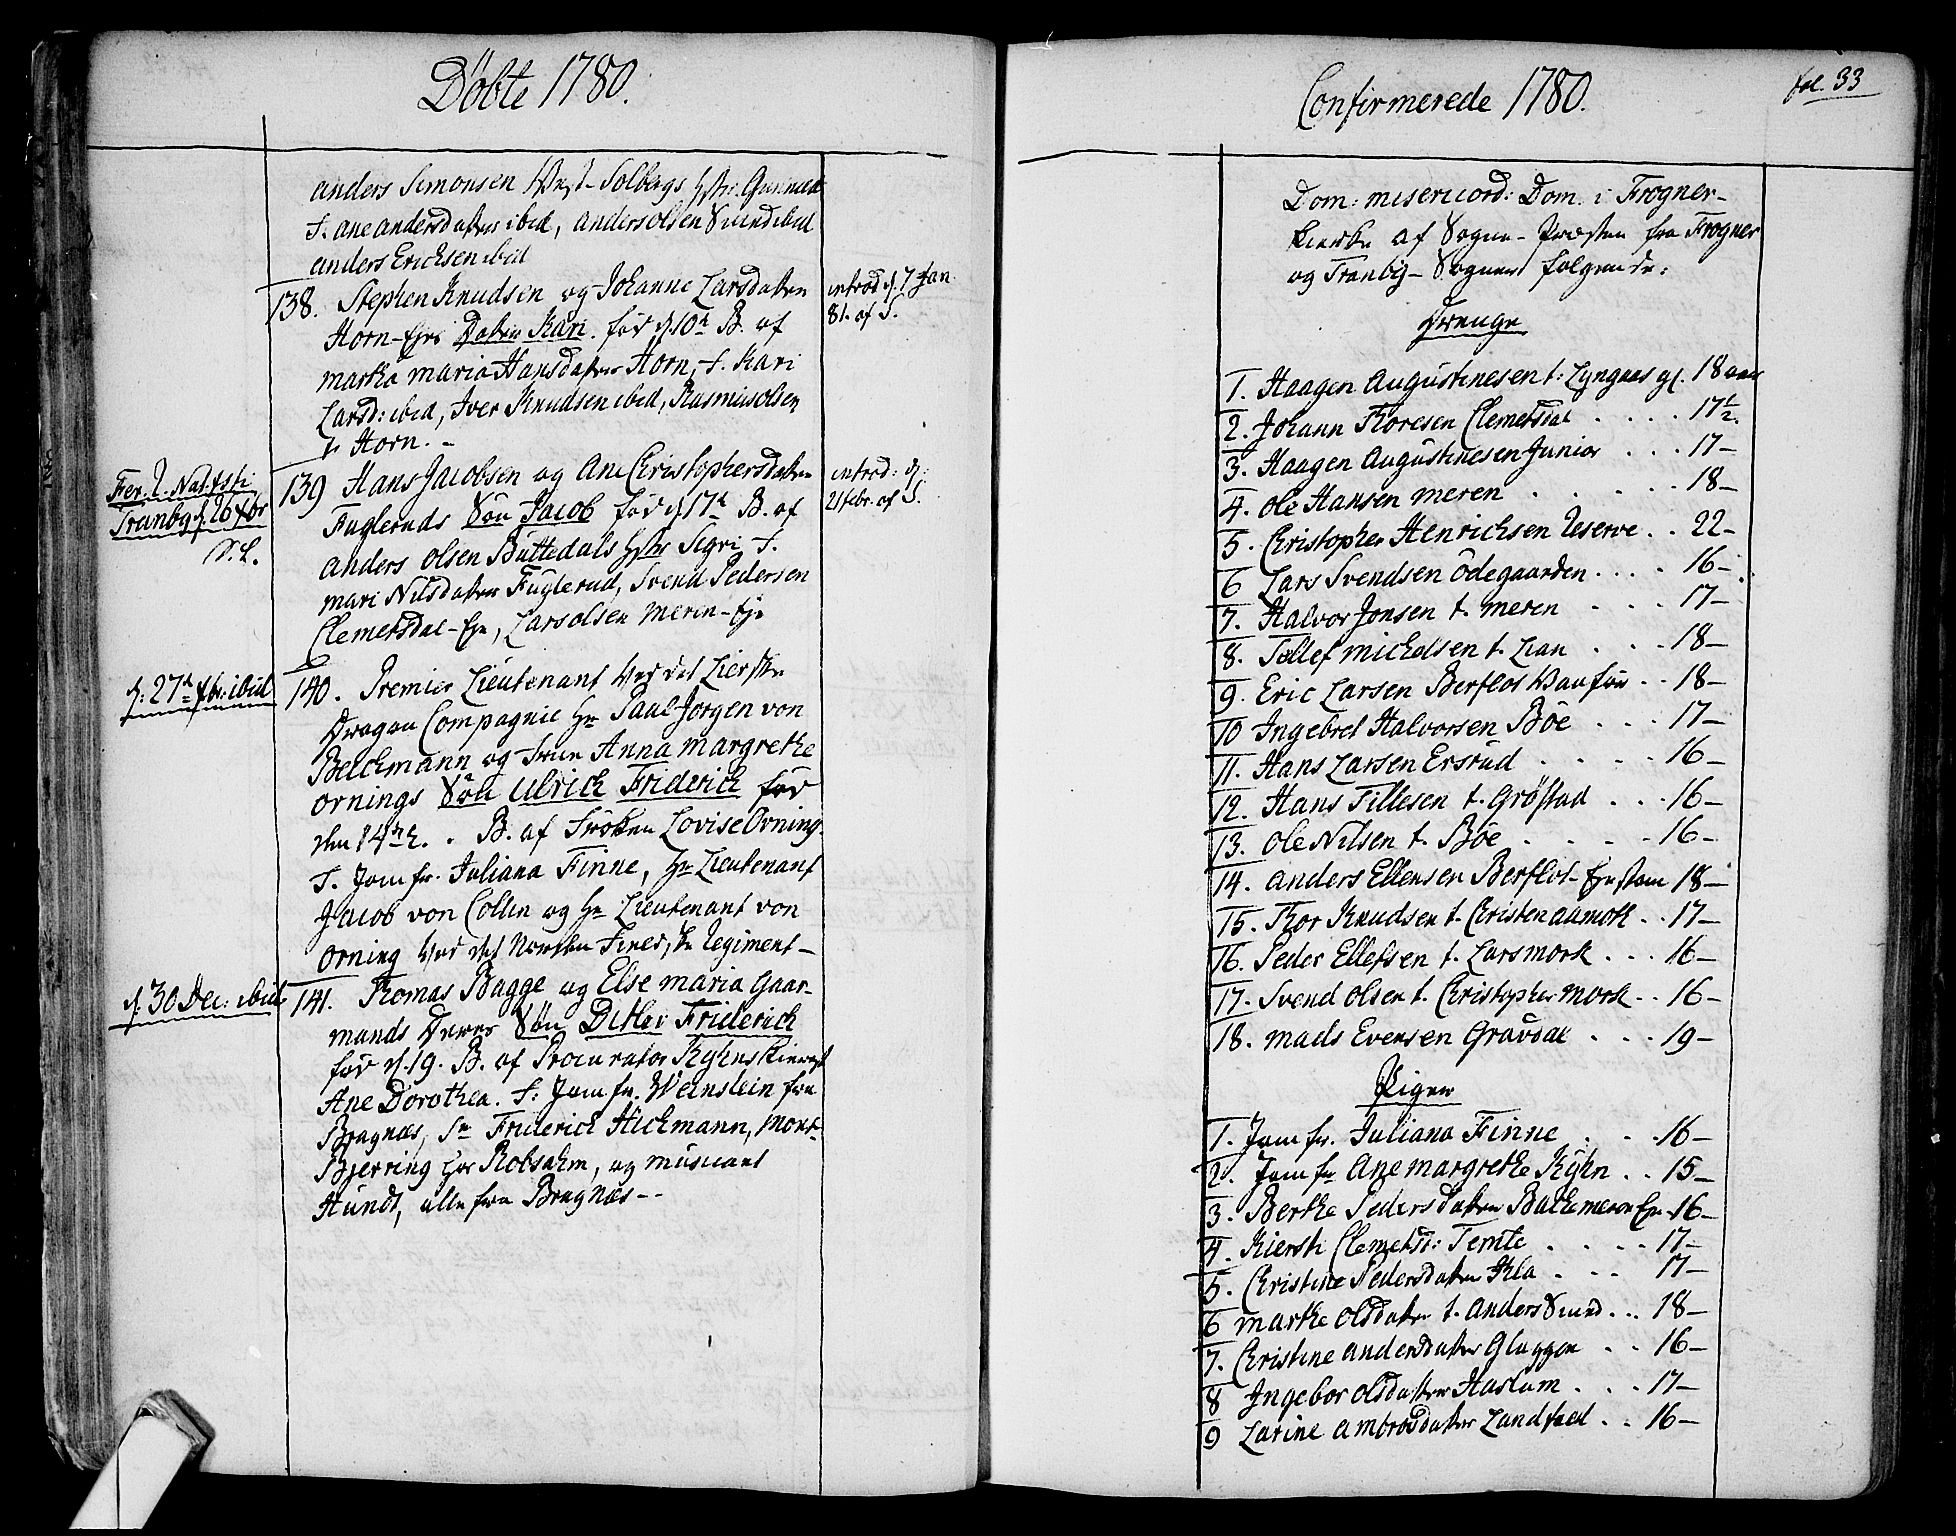 Döbte 1780.
anders Simonsen West-Solbergs Hstr. Gunnild
F. ane andersdatter ibid, anders olsen Svind ibid
anders Erichsen ibid
138. Stephen Knudsen og Johanne Larsdatter
Horn-Ejes Datter Kari. föd d. 10de B. af
marthe maria Hansdatter Horn, F. Kari
Larsd: ibid, Iver Knudsen ibid, Rasmus olsen
t. Horn. -
introd d. 7 Jan.
81. af S.
Fer. 2. Nat. Xsti
Tranbg d. 26 Xbr
S. L.
139 Hans Jacobsen og Ane Christophersdatter
Fugleruds Sön Jacob föd d. 17de B. af
anders olsen Büttedals Hstr Sigri F.
mari Nilsdatter Fuglerud, Svend Pedersen
Clemetsdal-Eje, Lars olsen meren-Eje
introd: d:
21 febr. af S.
d: 27de Xbr: ibid
140. Premier Lieutenant ved det Lierske
Dragon Compagnie Hr Paul Jörgen von
Beichmann og Frue Anna margrethe
ornings Sön Ulrich Friderich föd
den 14de. B. af Fröken Lovise Orning
F. Jomfr. Juliana Finne, Hr Lieutenant
Jacob von Collin og Hr Lieutenant von
Orning ved det Norske Regiment-
d: 30 Dec: ibid
141. Thomas Bagge og Else maria Gaar-
mands Deres Sön Ditlev Friderich
föd d. 19. B. af Procurator Kyhns Kiereste
Ane Dorothea. F: Jomfr. Weinstein fra
Bragnæs, Sr Friderich Hichmann, Mons-
Bjerring hos Robsahm, og musicant
Hundt, alle fra Bragnæs--
Confirmerede 1780.
fol. 33
Dom: misericord: Dom. i Frogner-
Kierke af Sogne-Præsten fra Frogner
og Tranbÿ-Sogner fölgende:
Drenge
1. Haagen Augustinesen t. Lyngaas gl. 18 aar
2. Johann Thoresen Clemetsdal .... 17½.
3. Haagen Augustinesen Junior ... 17-
4. Ole Hansen meren ..... 18-
5. Christopher Henrichsen Reserve .. 22-
6 Lars Svendsen ödegaarden .... 16-
7. Halvor Jonsen t. meren ... 17-
8. Tollef michelsen t. Lian ... 18-
9. Eric Larsen Berflot .. 18-
10 Ingebret Halvorsen Böe ... 17-
11. Hans Larsen Ersrud .... 16-
12. Hans Tillesen t. Gröstad ... 16-
13. Ole Nilsen t. Böe .... 16-
14. Anders Ellensen Berflot- 18-
15. Thor Knudsen t. Christen aamoth .. 17-
16. Peder Ellefsen t. Lars mork ... 16-
17. Svend olsen t. Christopher mork .. 16-
18. mads Evensen Gravdal ... 19-
Piger
1. Jomfr. Juliana Finne ... 16-
2. Jomfr Ane margrethe Kÿhn .. 15-
3. Berthe Pedersdatter Bakemeren Eje 16-
4. Kiersti Clemetsd: Temte .... 17-
5. Christine Pedersdatter Kla ... 17-
6 Marthe olsdatter t. anders Svind ... 18-
7. Christine andersdatter Gluggen .. 16-
8 Ingebor olsdatter Haslum ... 17-
9 Larine Ambrosdatter Landfald .. 16-